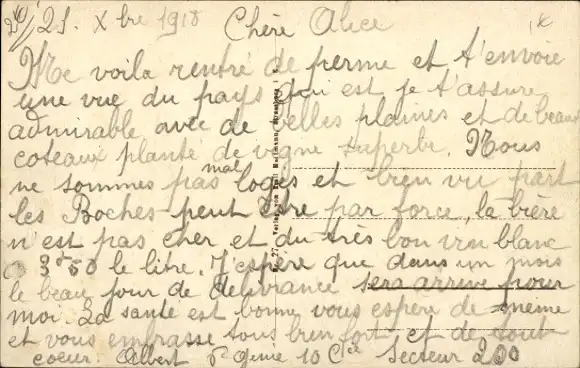 24/25. Xbre 1918 Chère Alice
Me voila rentré de perme et t'envoie
une vue du pays qui est je t'assure
admirable avec de belles plaines et de beaux
coteaux planté de vigne superbe. Nous
ne sommes pas mal logés et bien vu part
les Boches peut être par force, la bière
n'est pas cher et du très bon vin blanc
3 50 le litre. J'espère que dans un mois
le beau jour de délivrance sera arrivé pour
moi. La santé est bonne vous espere de même
et vous embrasse tous bien fort et de tout
coeur. Albert 5e génie 10 Cie Secteur 200
No. 27 Verlag von